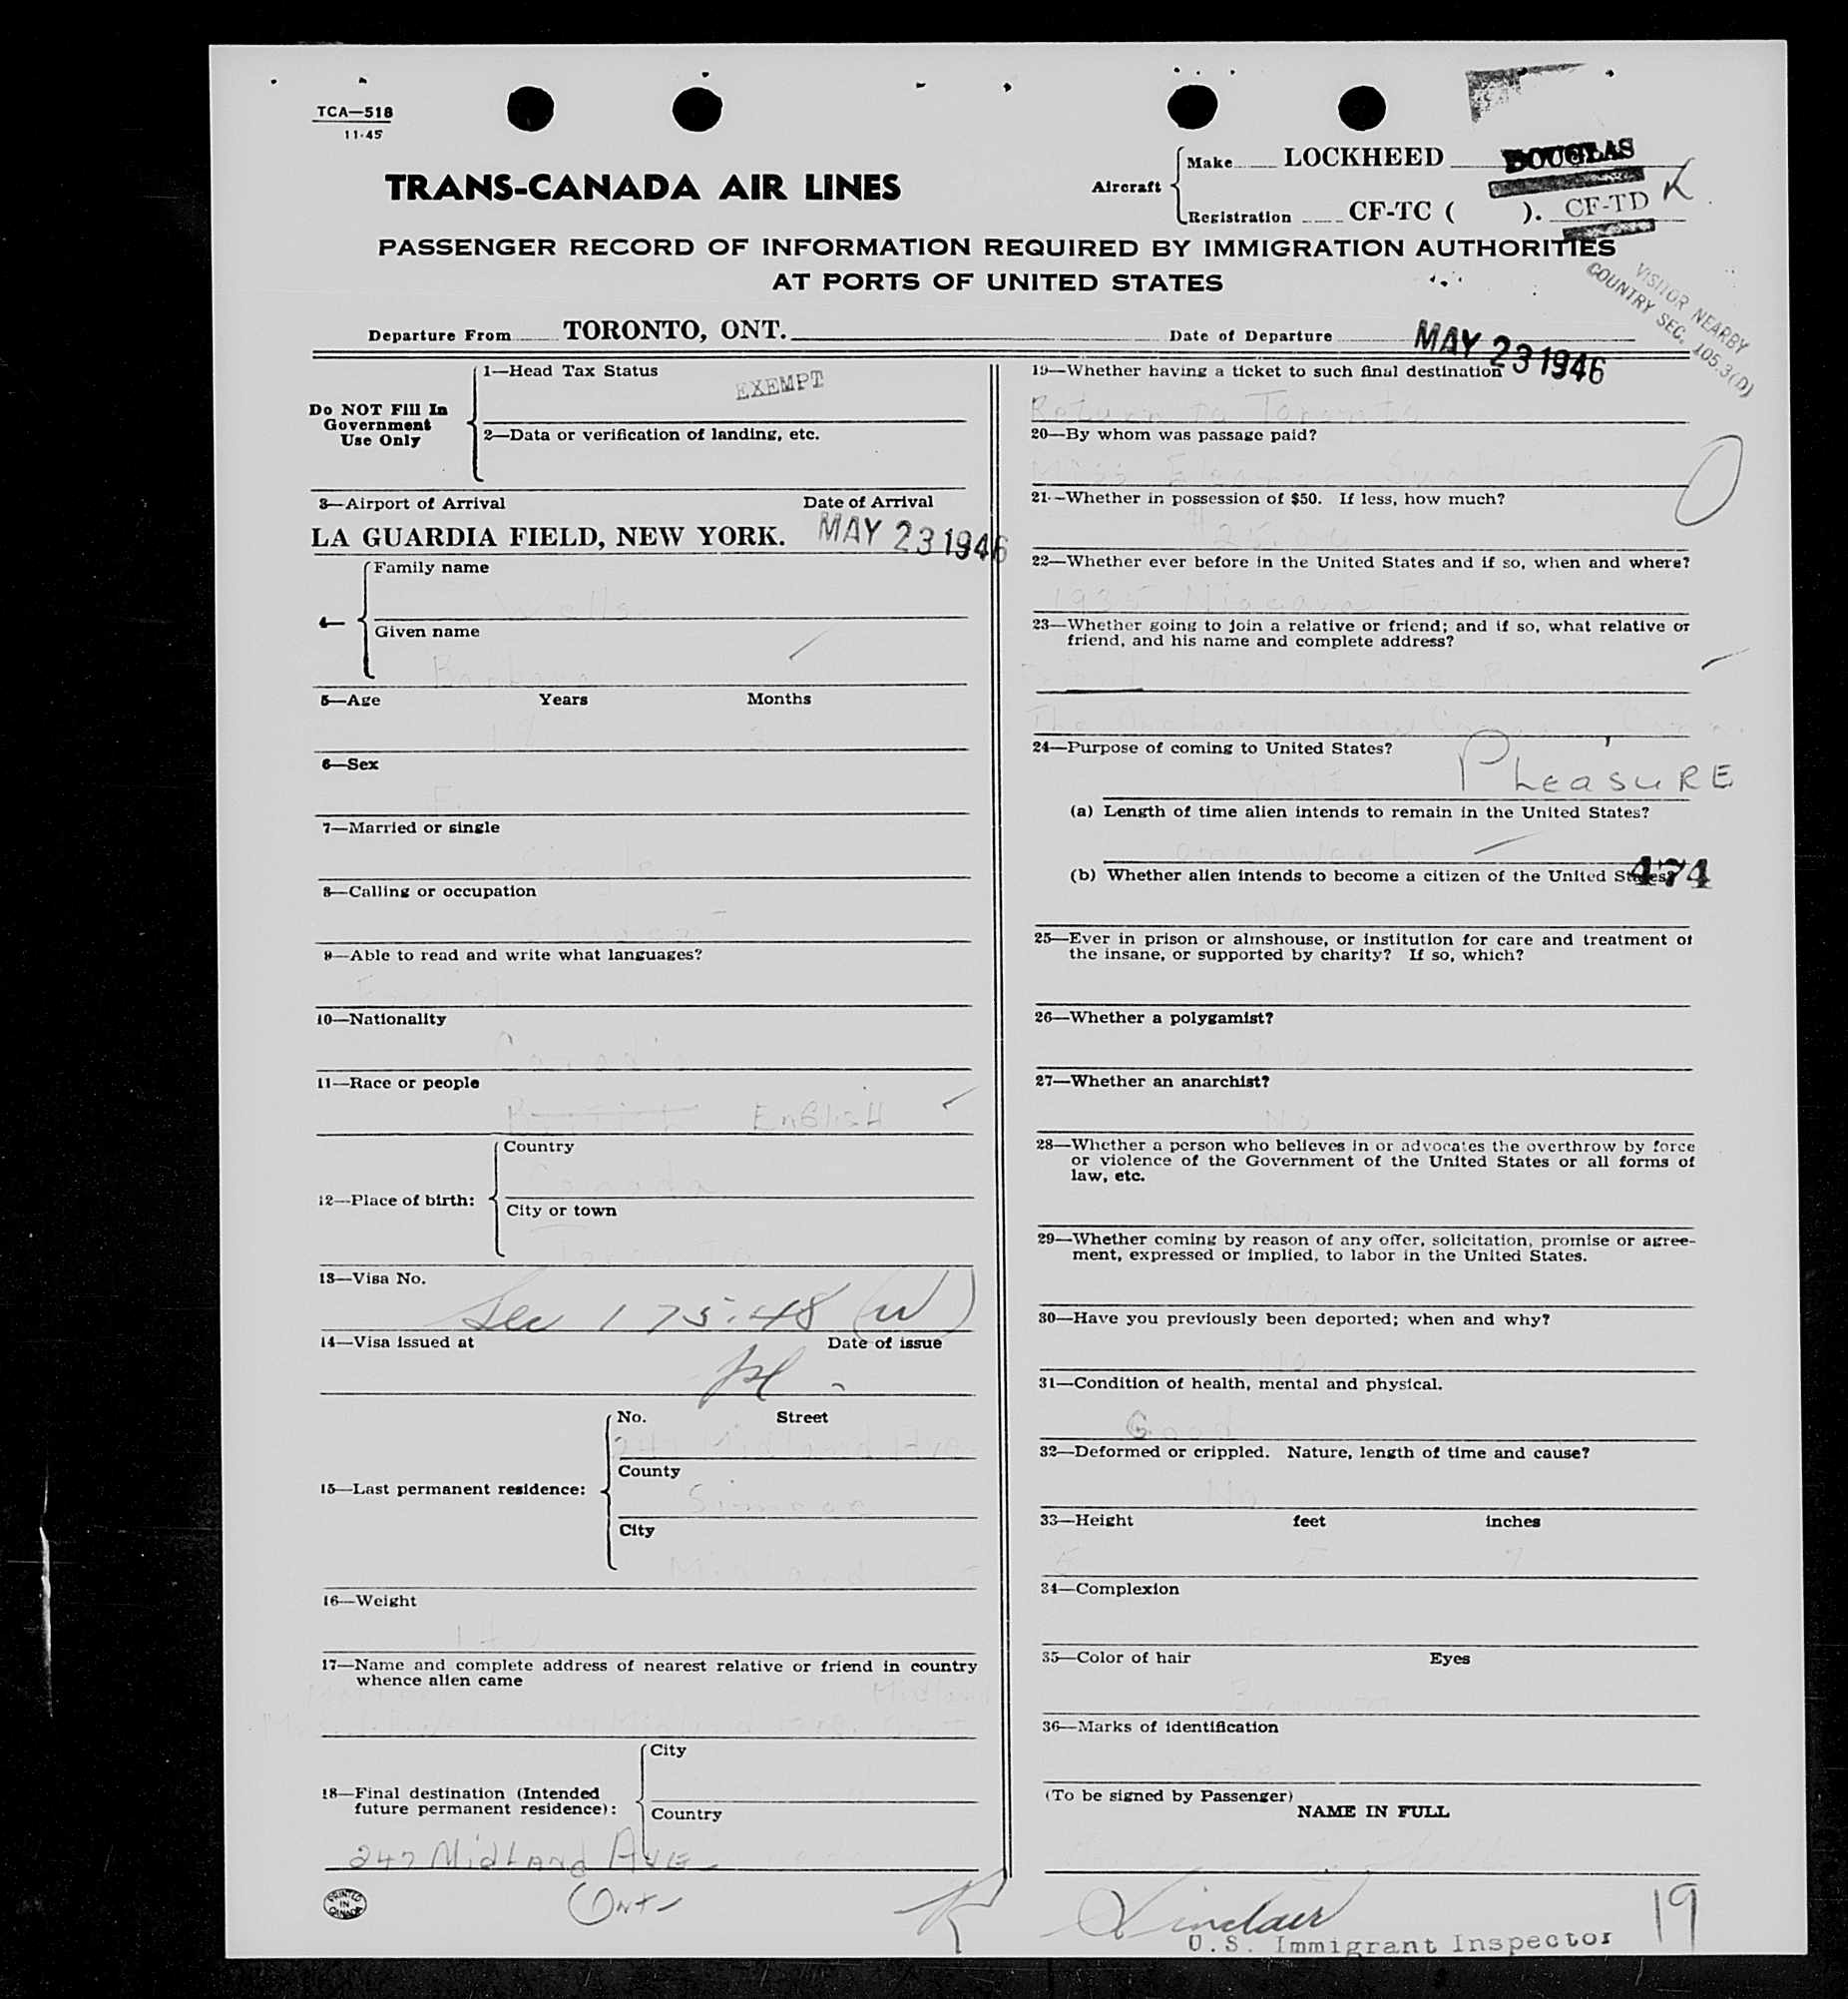 TCA—518
11-45
TRANS-CANADA AIR LINES
Aircraft
Make LOCKHEED DOUGLAS
Registration CF-TC ( ). CF-TD K
PASSENGER RECORD OF INFORMATION REQUIRED BY IMMIGRATION AUTHORITIES
AT PORTS OF UNITED STATES
VISITOR NEARBY
COUNTRY SEC. 105.3(D)
Departure From TORONTO, ONT. Date of Departure MAY 23 1946
Do NOT Fill In
Government
Use Only
1—Head Tax Status
EXEMPT
2—Data or verification of landing, etc.
3—Airport of Arrival Date of Arrival
LA GUARDIA FIELD, NEW YORK. MAY 23 1946
4—
Family name
Wells
Given name
Barbara
5—Age Years Months
17
6—Sex
F.
7—Married or single
Single
8—Calling or occupation
Student
9—Able to read and write what languages?
English
10—Nationality
11—Race or people
British EnGlisH
12—Place of birth:
Country
Canada
City or town
Toronto
13—Visa No.
Sec 175.48 (W)
14—Visa issued at Date of issue
15—Last permanent residence:
No. Street
247 Midland Ave.
County
Simcoe
City
Midland Ont
16—Weight
17—Name and complete address of nearest relative or friend in country
whence alien came
Midland
18—Final destination (Intended
future permanent residence):
City
Country
247 MidLAnd AVE
Ont
PRINTED
IN
CANADA
19—Whether having a ticket to such final destination
Return to Toronto
20—By whom was passage paid?
Miss
21—Whether in possession of $50. If less, how much?
25.00
22—Whether ever before in the United States and if so, when and where?
1935 Niagara Falls
23—Whether going to join a relative or friend; and if so, what relative or
friend, and his name and complete address?
Friend Miss Louise
The Orchard New Canaan, Conn.
24—Purpose of coming to United States?
Visit PLeasuRE
(a) Length of time alien intends to remain in the United States?
one week
(b) Whether alien intends to become a citizen of the United States?
474
No
25—Ever in prison or almshouse, or institution for care and treatment of
the insane, or supported by charity? If so, which?
No
26—Whether a polygamist?
No
27—Whether an anarchist?
No
28—Whether a person who believes in or advocates the overthrow by force
or violence of the Government of the United States or all forms of
law, etc.
No
29—Whether coming by reason of any offer, solicitation, promise or agree-
ment, expressed or implied, to labor in the United States.
No
30—Have you previously been deported; when and why?
No
31—Condition of health, mental and physical.
Good
32—Deformed or crippled. Nature, length of time and cause?
No
33—Height feet inches
5 7
34—Complexion
35—Color of hair Eyes
Brown
36—Marks of identification
(To be signed by Passenger)
NAME IN FULL
K Sinclair 19
U.S. Immigrant Inspector